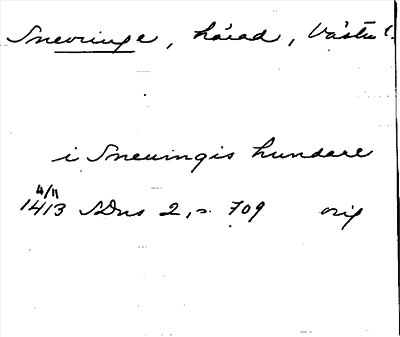 Snevringe, härad, Västml.
i Sneuingis hundare
4/11
1413 SDns 2, s. 709 orig